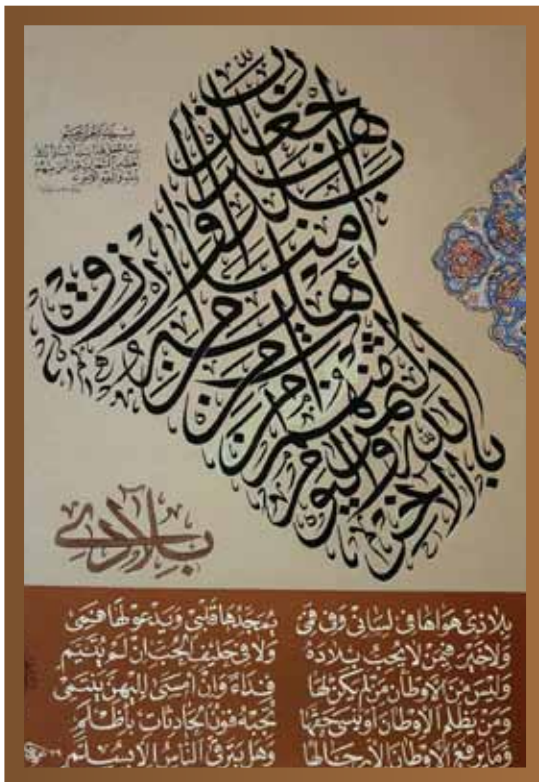 رب اجعل هذا بلدا آمنا وارزق أهله من الثمرات من آمن منهم بالله واليوم الآخر
بلادي
بلادي هواها في لساني وفي يمجدها قلبي ويدعو لها فمي
ولا خير فيمن لا يحب بلاده ولا في حليف الحب إن لم يتيم
وليس من الأوطان من لم يكن لها فداء وإن أمسى إليهن ينتمي
ومن يظلم الأوطان أو ينسى حقها تجبه فنون الحادثات بأظلم
وما يرفع الأوطان إلا رجالها وهل يترقى الناس إلا بسلم